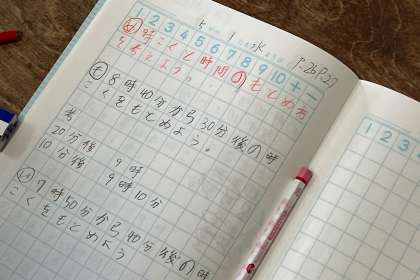 5 1 水
P.26 P.27
1 2 3 4 5 6 7 8 9 10 + −
め 時こくと時間のもとめ方
をもとめよう。
も 8時40分から30分後の時
こくをもとめよう。
考
20分後 9時
10分後 9時10分
い 7時50分から40分後の時
こくをもとめよう
1 2 3